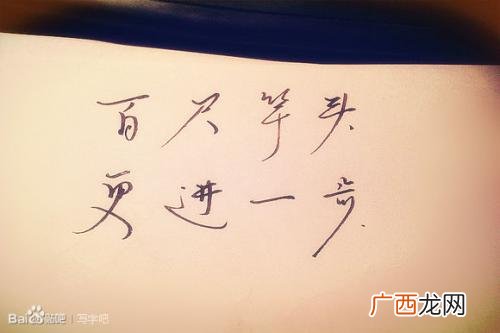 百尺竿头
更进一步
Baidu贴吧 | 写字吧
广西龙网